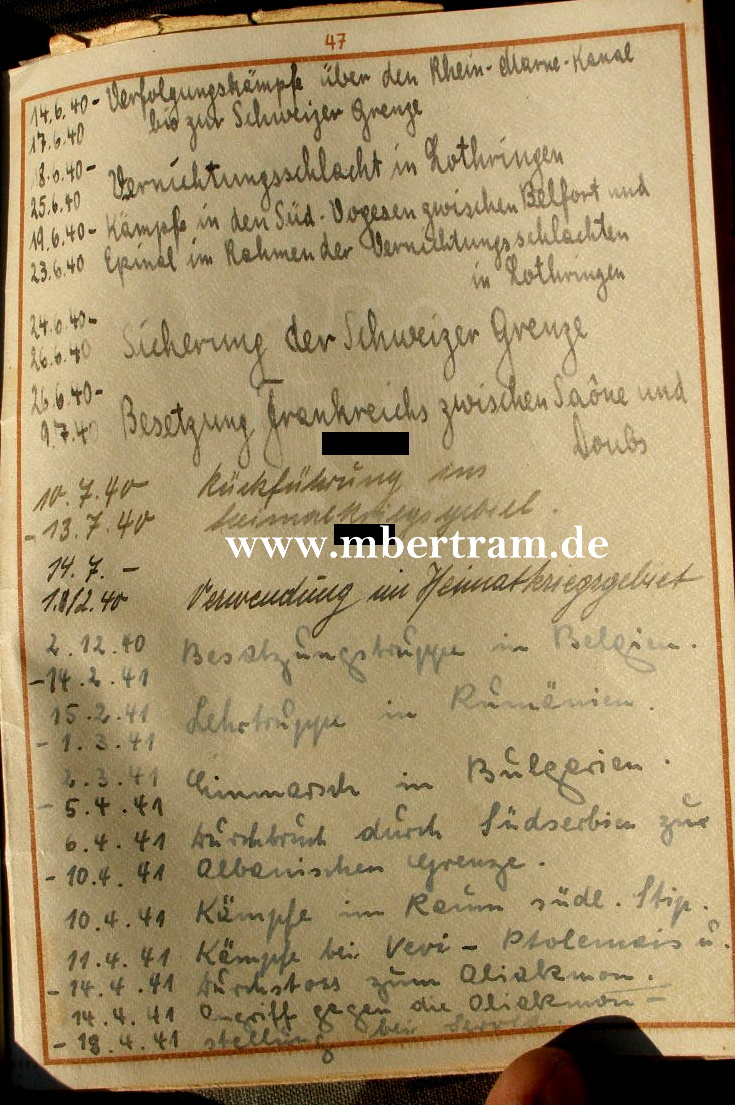 47
14.6.40 - Verfolgungskämpfe über den Rhein-Marne-Kanal
17.6.40 bis zur Schweizer Grenze
18.6.40 -
25.6.40 Vernichtungsschlacht in Lothringen
19.6.40 - Kämpfe in den Süd-Vogesen zwischen Belfort und
23.6.40 Epinal im Rahmen der Vernichtungsschlachten
in Lothringen
24.6.40 -
26.6.40 Sicherung der Schweizer Grenze
26.6.40 -
9.7.40 Besetzung Frankreichs zwischen Saône und
Doubs
10.7.40 Rückführung ins
- 13.7.40 Heimatkriegsgebiet.
www.mbertram.de
14.7. -
1.12.40 Verwendung im Heimatkriegsgebiet
2.12.40 Besatzungstruppe in Belgien.
- 14.2.41
15.2.41 Lehrtruppe in Rumänien.
- 1.3.41
2.3.41 Einmarsch in Bulgarien.
- 5.4.41
6.4.41 Durchbruch durch Südserbien zur
- 10.4.41 Albanischen Grenze.
10.4.41 Kämpfe im Raum südl. Stip.
11.4.41 Kämpfe bei Vevi - Ptolemais u.
- 14.4.41 Durchstoss zum Aliakmon.
14.4.41 Angriff gegen die Aliakmon-
- 18.4.41 stellung bei